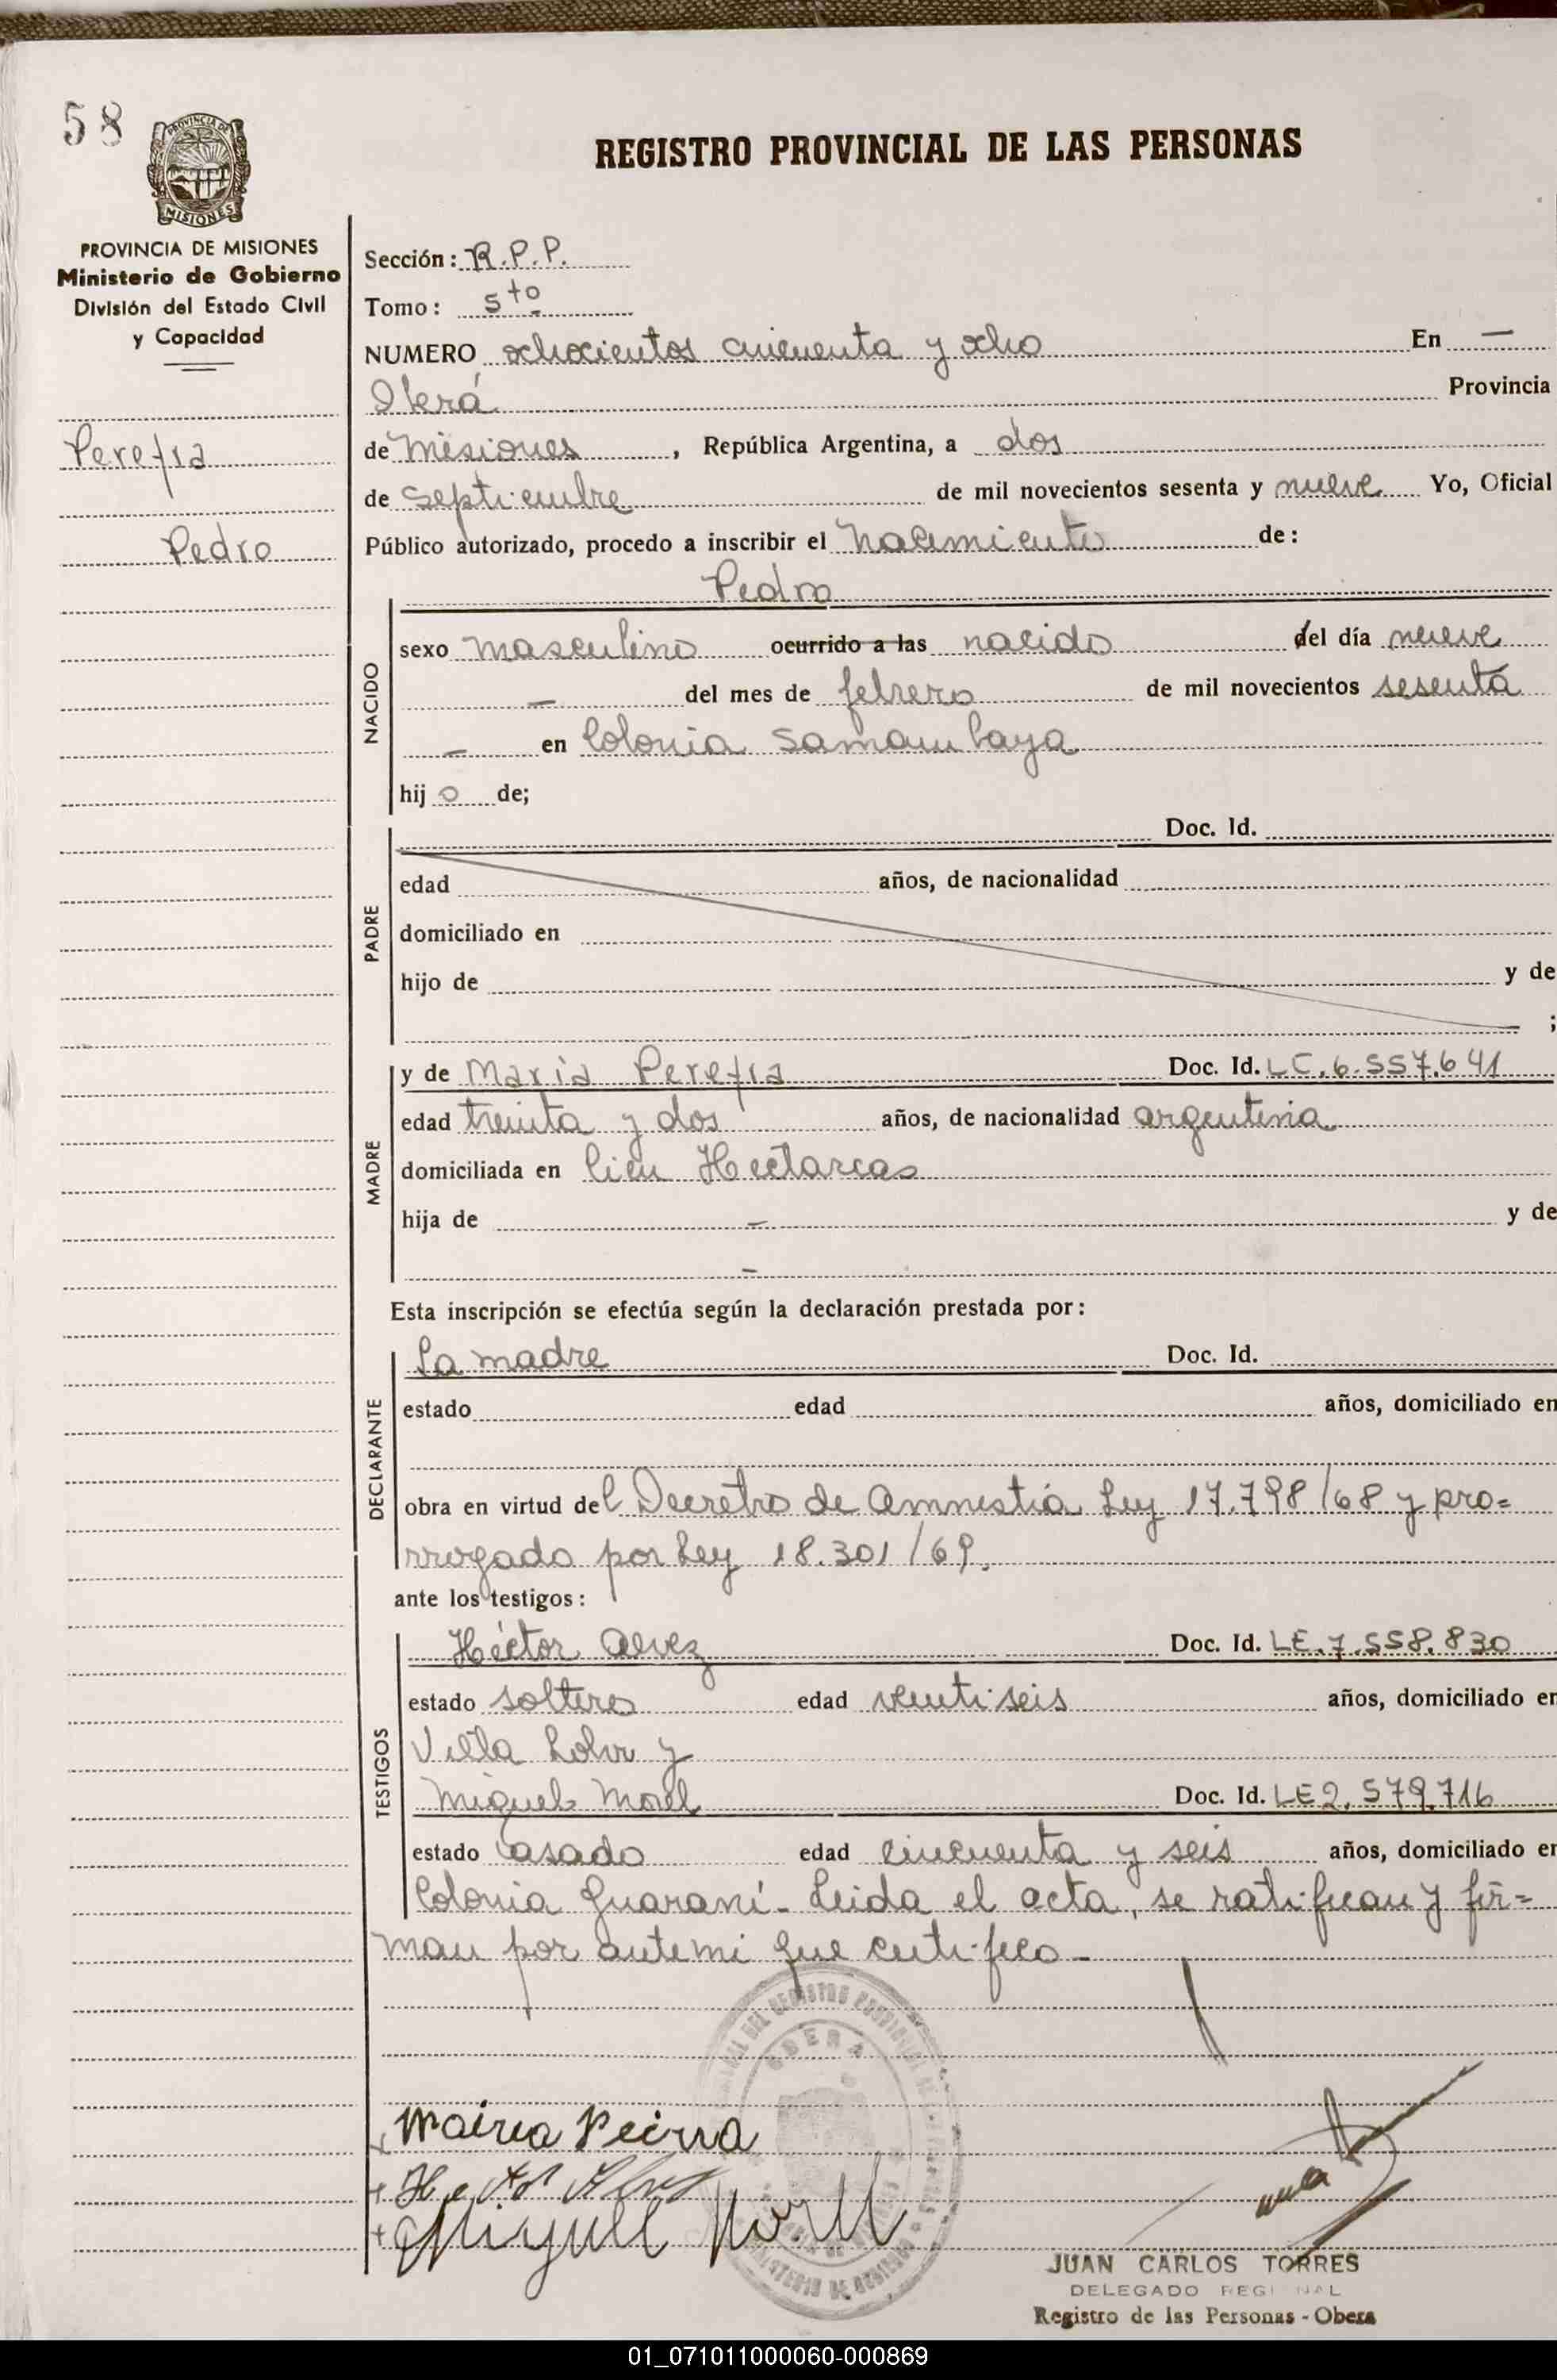 58
PROVINCIA DE
MISIONES
REGISTRO PROVINCIAL DE LAS PERSONAS
PROVINCIA DE MISIONES
Ministerio de Gobierno
División del Estado Civil
y Capacidad
Pereyra
Pedro
Sección: R.P.P.
Tomo: 5to
NUMERO ochocientos cincuenta y ocho En —
Oberá Provincia
de Misiones, República Argentina, a dos
de septiembre de mil novecientos sesenta y nueve Yo, Oficial
Público autorizado, procedo a inscribir el nacimiento de:
Pedro
NACIDO
sexo masculino ocurrido a las nacido del día nueve
— del mes de febrero de mil novecientos sesenta
— en Colonia Samambaya
hijo de;
PADRE
Doc. Id.
edad años, de nacionalidad
domiciliado en
hijo de y de
;
MADRE
y de Maria Pereyra Doc. Id. LC.6.557.641
edad treinta y dos años, de nacionalidad argentina
domiciliada en Cien Hectareas
hija de — y de
—
Esta inscripción se efectúa según la declaración prestada por:
DECLARANTE
La madre Doc. Id.
estado edad años, domiciliado en
obra en virtud del Decretro de Amnestia Ley 17.798/68 y pro=
rrogado por Ley 18.301/69.
ante los testigos:
TESTIGOS
Héctor Alvez Doc. Id. LE.7.558.830
estado soltero edad veintiseis años, domiciliado en
Villa y
Miguel Morel Doc. Id. LE2.579.716
estado Casado edad cincuenta y seis años, domiciliado en
Colonia Guaraní. Leida el acta, se ratifican y fir=
man por antemi que certifico-
OBERA
MINISTERIO DE GOBIERNO
Miguell Morell
JUAN CARLOS TORRES
DELEGADO REGIONAL
Registro de las Personas - Obera
01_071011000060-000869